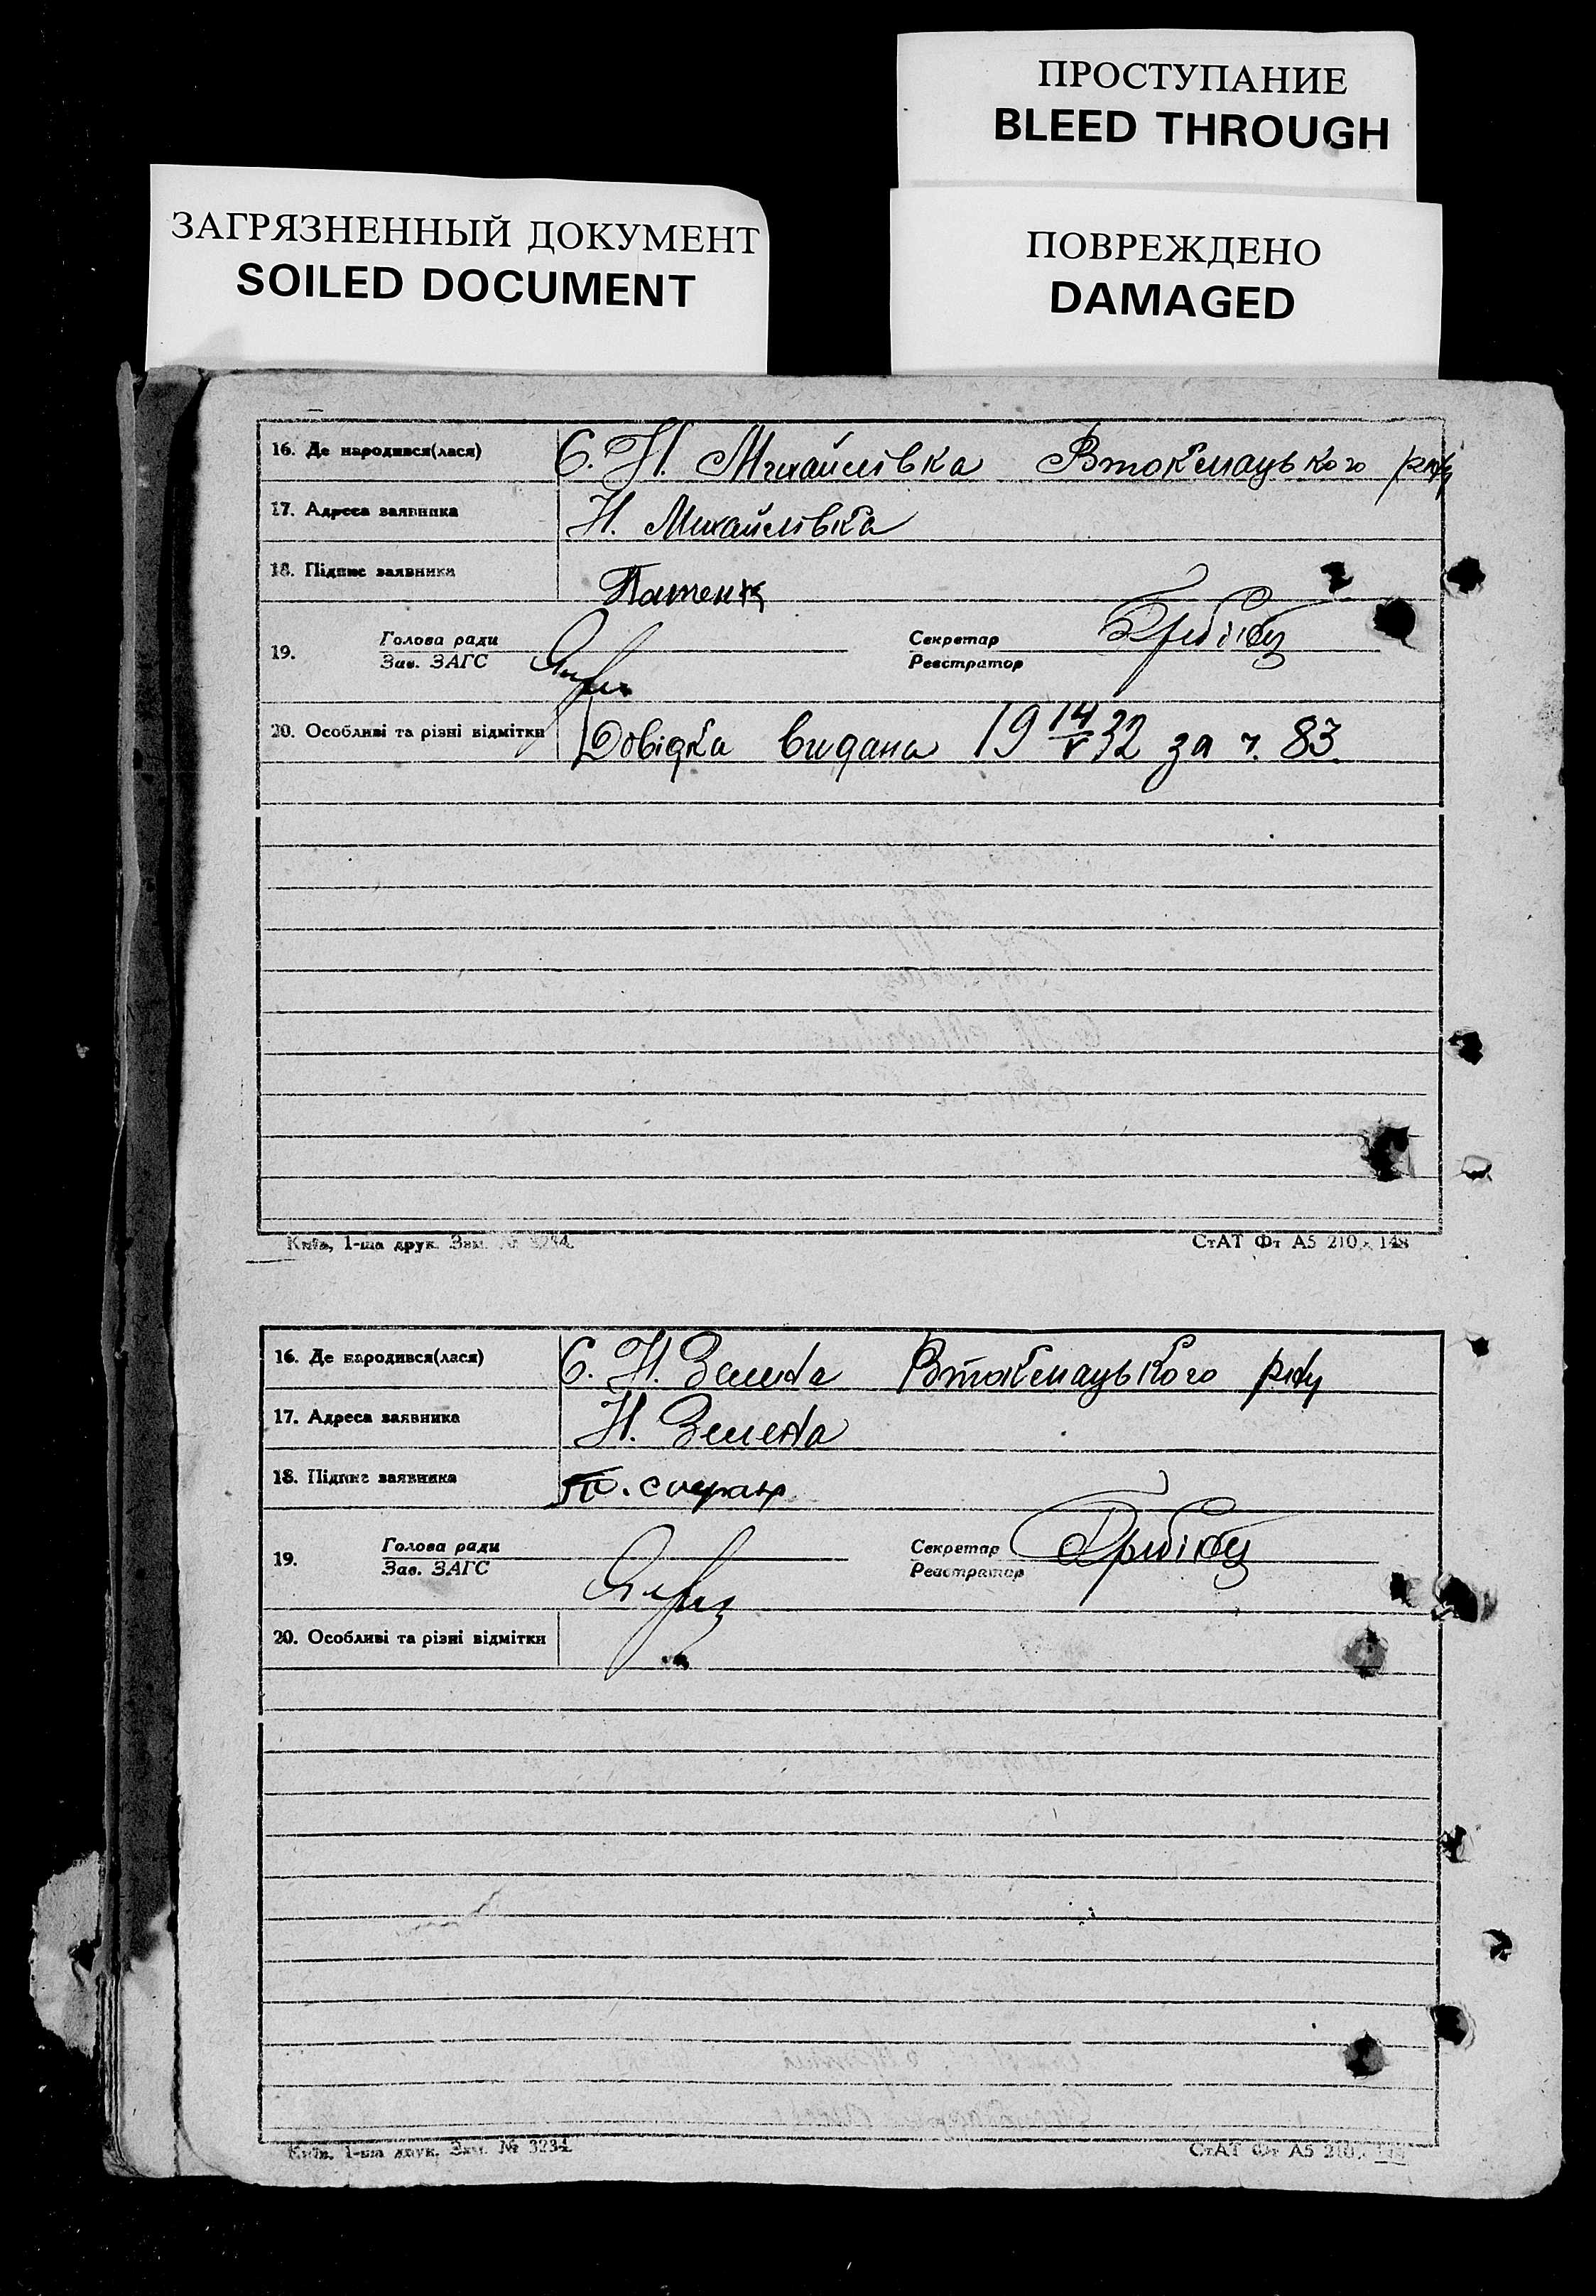 ПРОСТУПАНИЕ
BLEED THROUGH
ЗАГРЯЗНЕННЫЙ ДОКУМЕНТ
SOILED DOCUMENT
ПОВРЕЖДЕНО
DAMAGED
16. Де народився(лася) С. Н. Михайлівка Втокмацького р-ну
17. Адреса заявника Н. Михайлівка
18. Підпис заявника
19. Голова ради Секретар
Зав. ЗАГС Реєстратор
20. Особливі та різні відмітки Довідка видана 19 14/V 32 за ч. 83.
Київ, 1-ша друк. Зам. № 3234. СтАТ Фт А5 210 × 148
16. Де народився(лася) С. Н. Зелена Втокмацького р-ну
17. Адреса заявника Н. Зелена
18. Підпис заявника
19. Голова ради Секретар
Зав. ЗАГС Реєстратор
20. Особливі та різні відмітки
Київ, 1-ша друк. Зам. № 3234. СтАТ Фт А5 210 ×